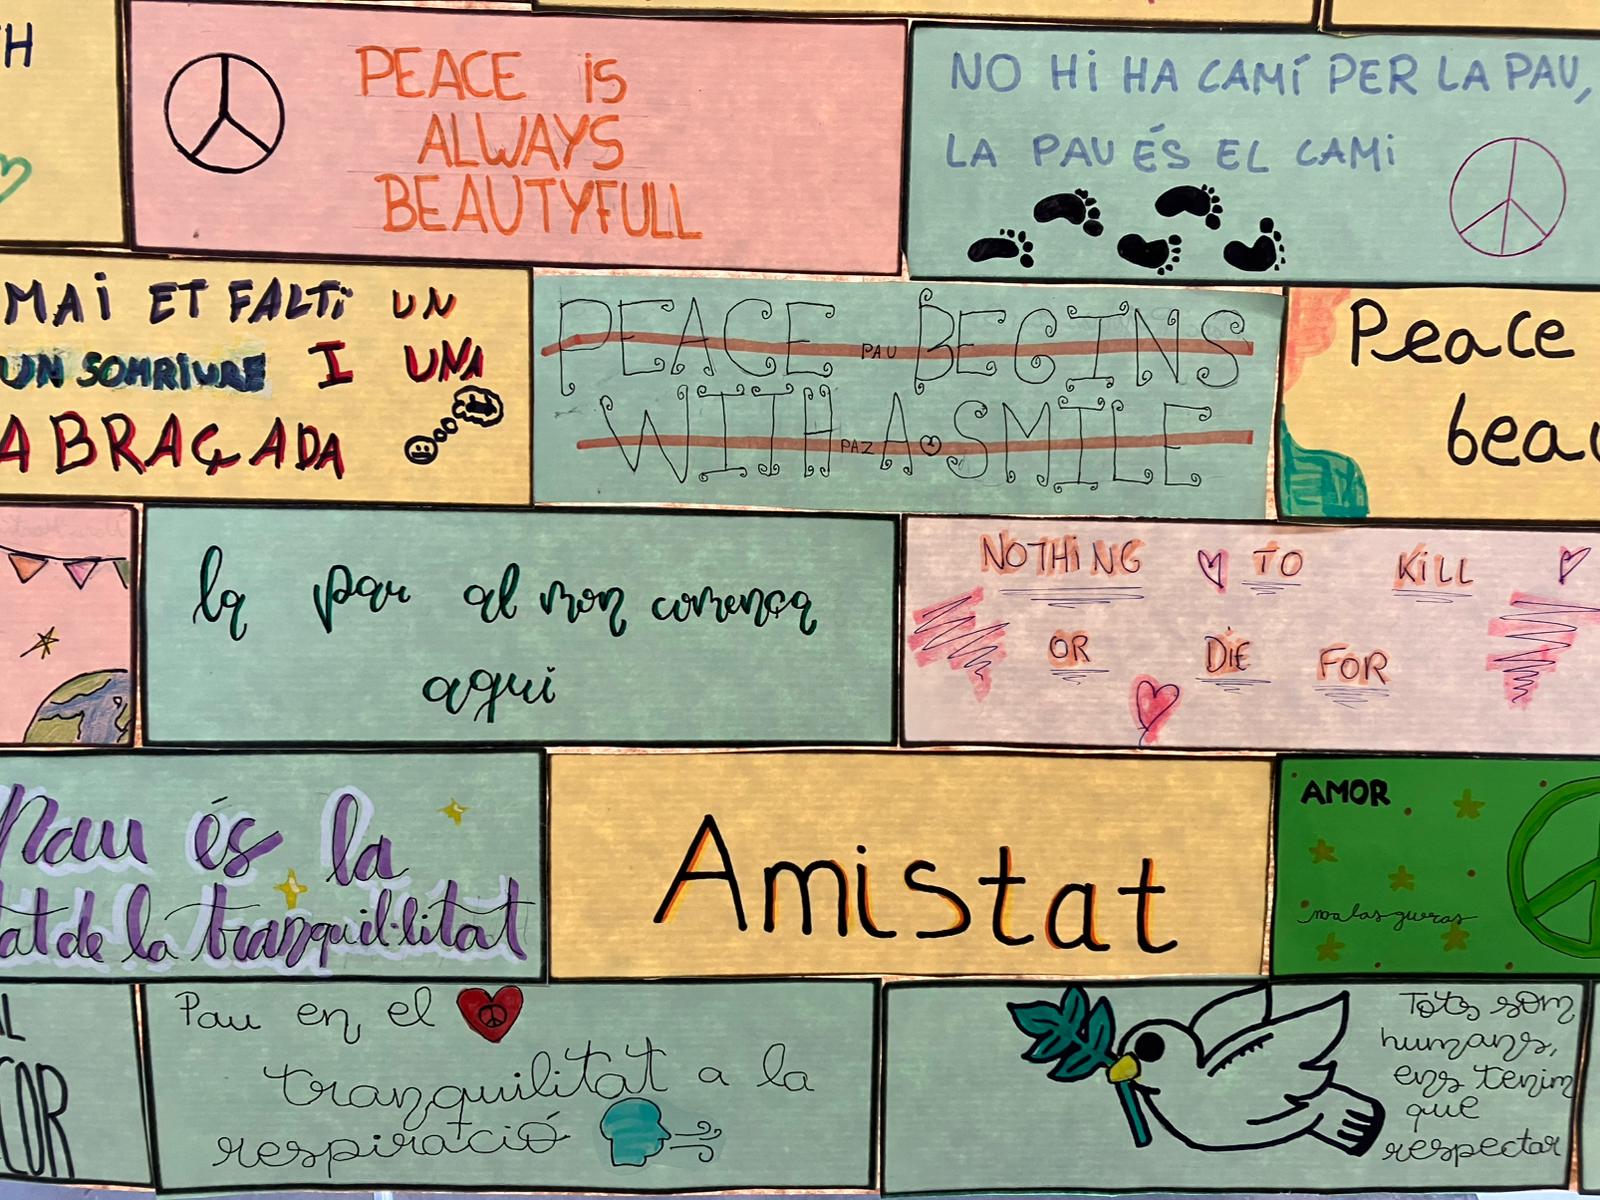 PEACE is
ALWAYS
BEAUTYFULL
NO Hi HA CAMÍ PER LA PAU,
LA PAU ÉS EL CAMi
MAi ET FALTi UN
UN SOMRIURE I UNA
ABRAÇADA
PEACE PAU BEGINS
WITH PAZ A SMILE
Peace
la pau al mon comença
aqui
NOTHiNG TO KiLL
OR DiE FOR
Pau és la
tat de la tranquil·litat
Amistat
AMOR
no a las guerras
COR
Pau en el
tranquilitat a la
respiració
Tots som
humans,
ens tenim
que
respectar